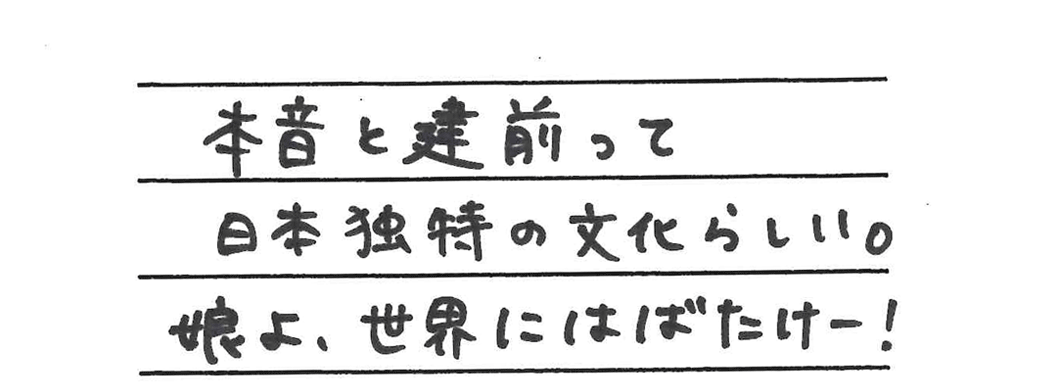 本音と建前って
日本独特の文化らしい。
娘よ、世界にはばたけー!